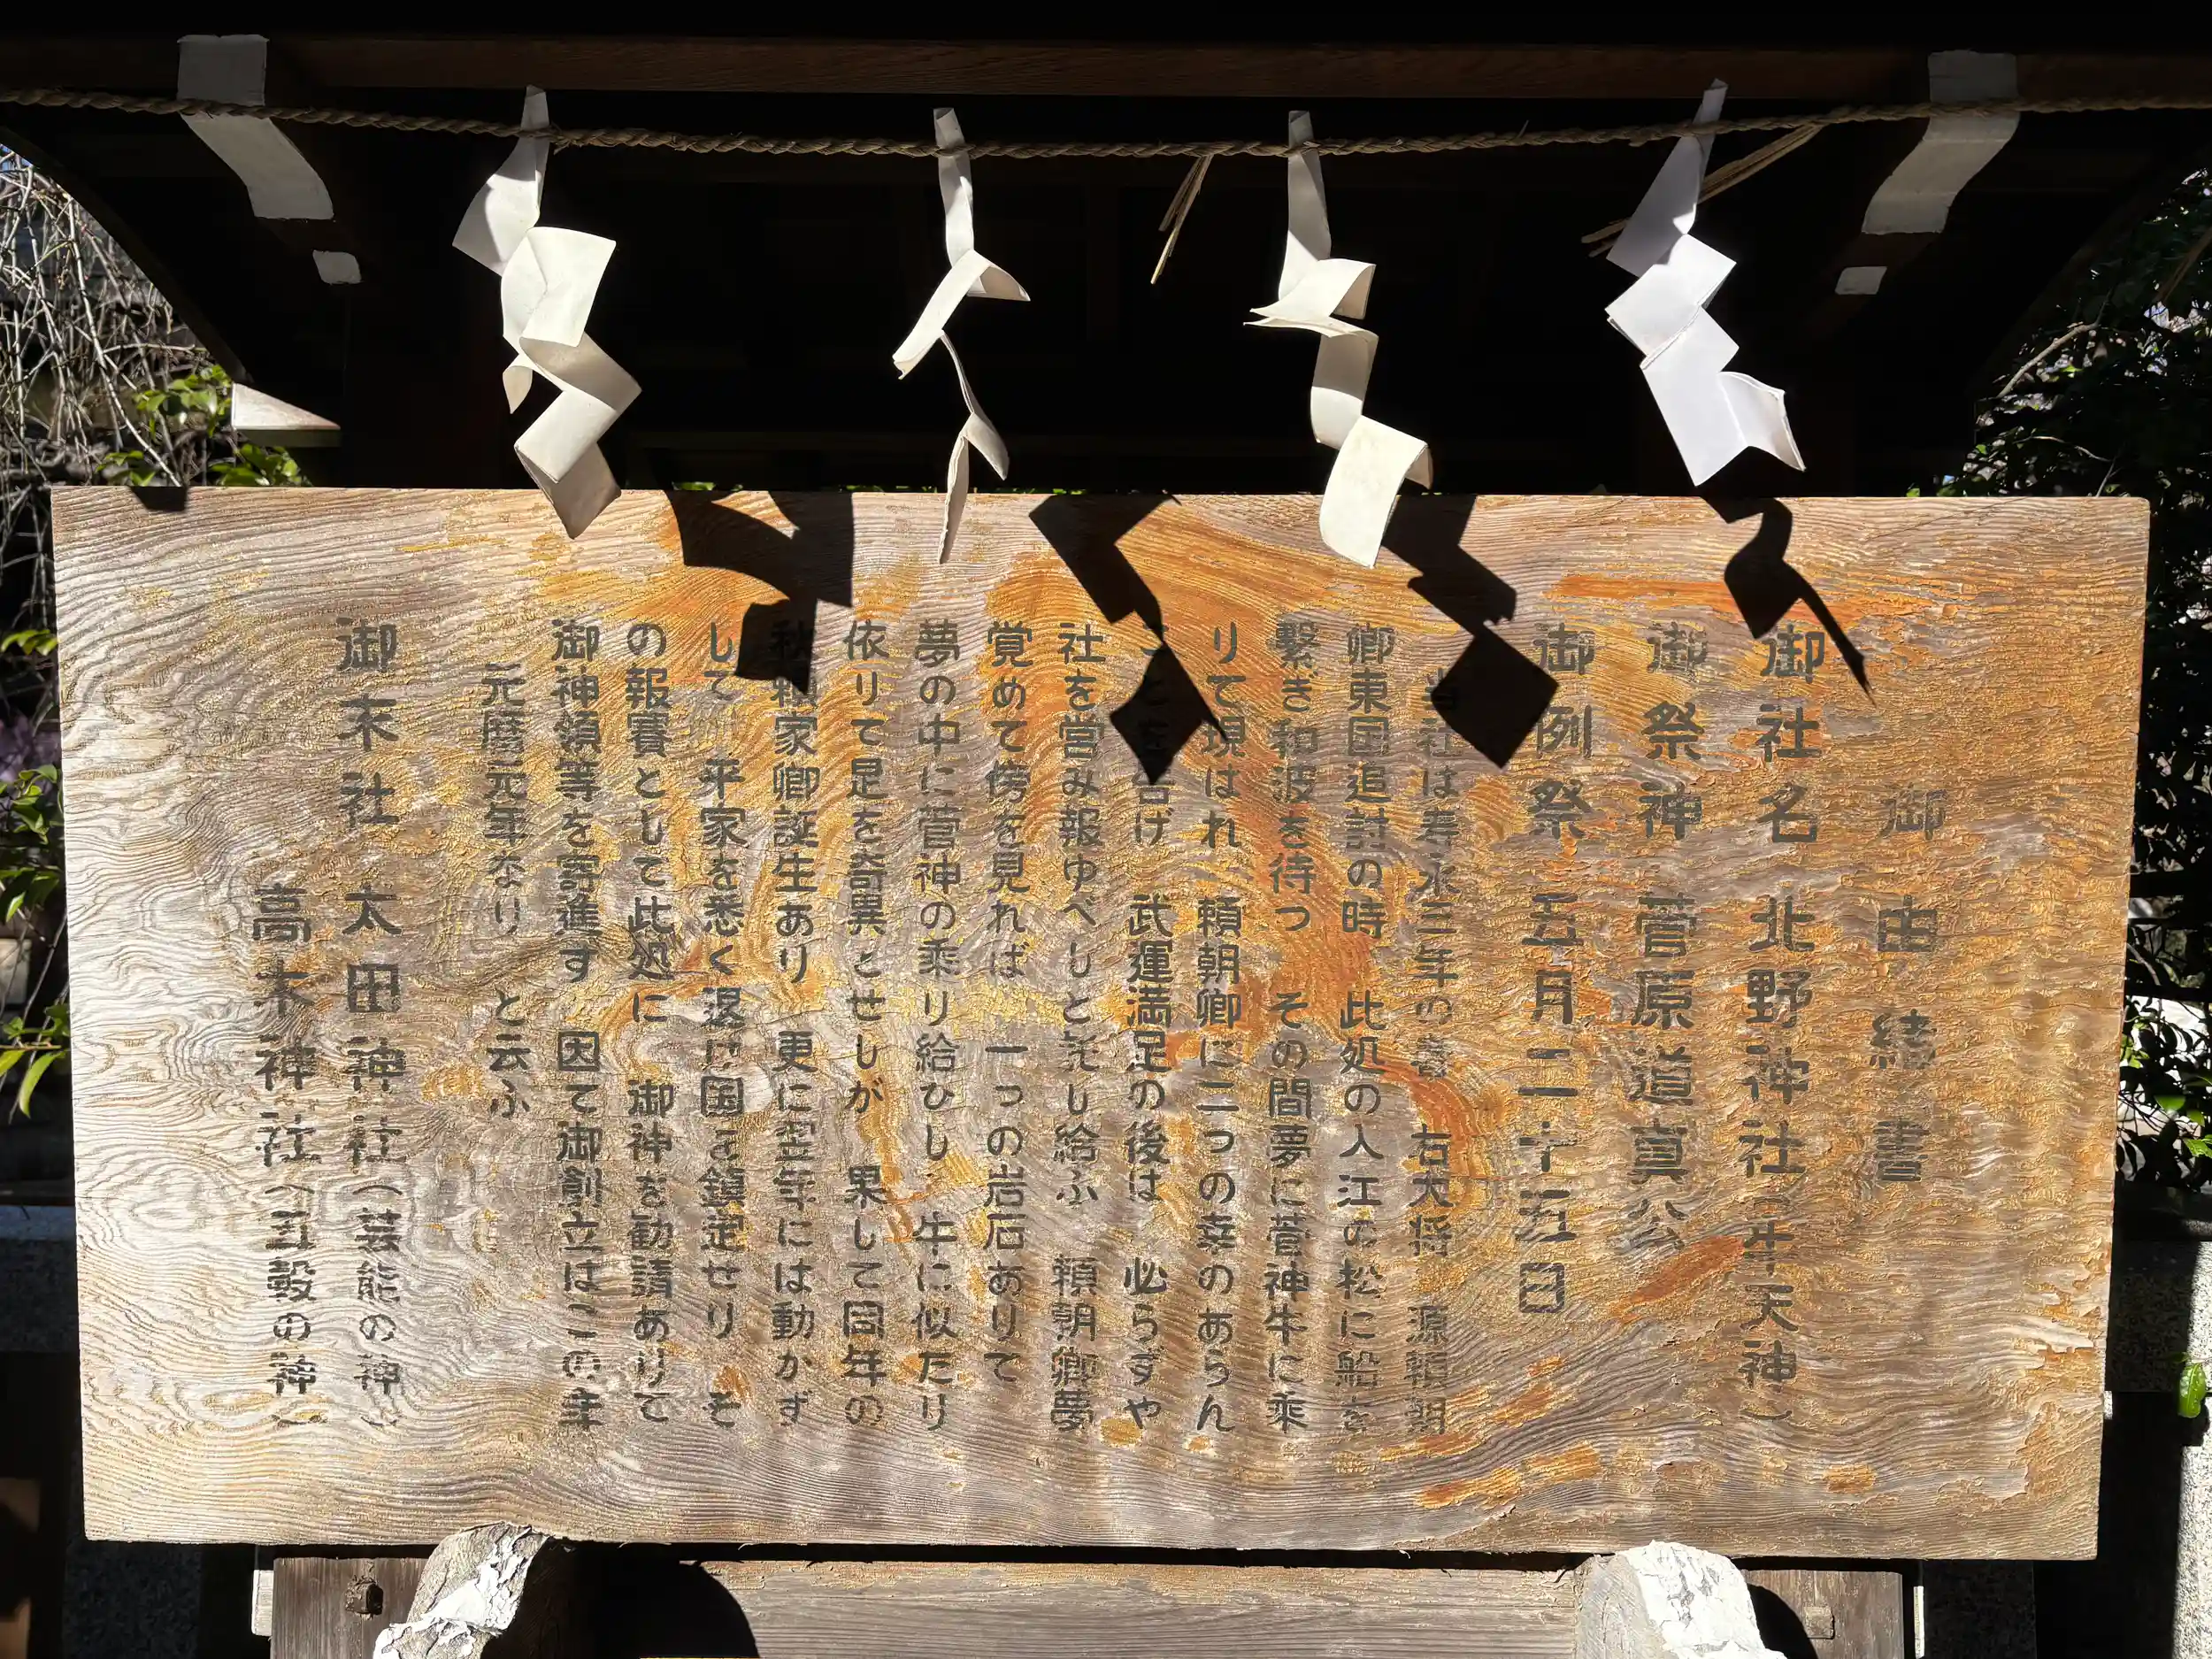 御由緒書
御社名 北野神社(牛天神)
御祭神 菅原道真公
御例祭 五月二十五日
当社は寿永三年の春 右大将 源頼朝
卿東国追討の時 此処の入江の松に船を
繋ぎ和波を待つ その間夢に菅神牛に乗
りて現はれ 頼朝卿に二つの幸のあらん
と 告げ 武運満足の後は 必らずや
社を営み報ゆべしと託し給ふ 頼朝卿夢
覚めて傍を見れば 一つの岩石ありて
夢の中に菅神の乗り給ひし 牛に似たり
依りて是を奇異とせしが 果して同年の
秋頼家卿誕生あり 更に翌年には動かず
して 平家を悉く退け国を鎮定せり そ
の報賽として此処に 御神を勧請ありて
御神領等を寄進す 因て御創立はこの年
元暦元年なり と云ふ
御末社 太田神社(芸能の神)
高木神社(五穀の神)